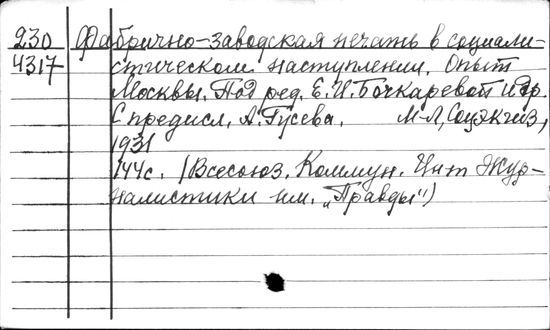 230 Фабрично-заводская печать в социали-
4317 стическом наступлении. Опыт
Москвы. Под ред. Е. И. Бочкаревой и др.
С предисл. А. Гусева. М-Л, Соцэкгиз,
1931
144 с. (Всесоюз. Коммун. Инт Жур-
налистики им. „Правды")